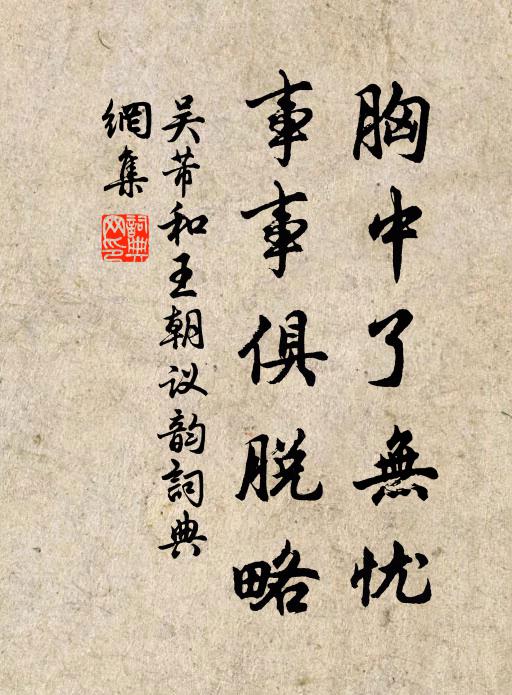 胸中了無忧
事事俱脫略
吴芾和王朝议韵詞典
網集
詞典网印